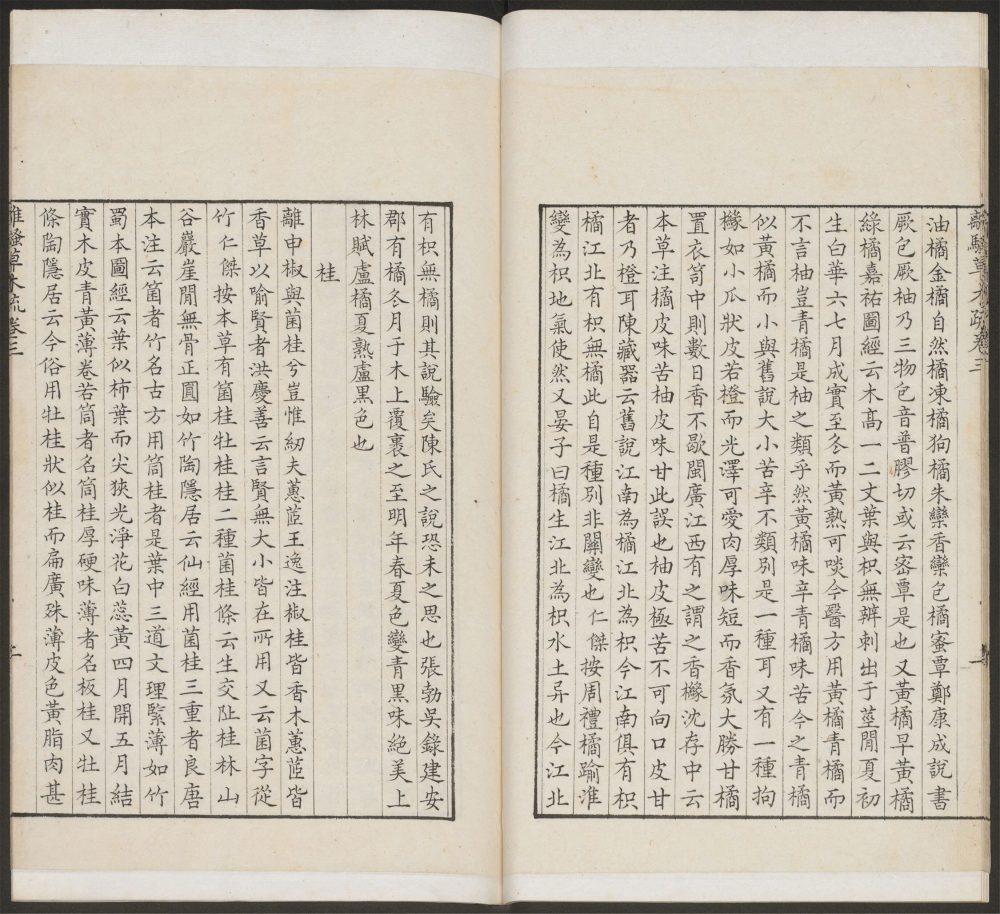 離騷草木疏卷三
油橘金橘自然橘凍橘狗橘朱欒香欒包橘蜜覃鄭康成說書
厥包厥柚乃三物包音普膠切或云密覃是也又黃橘早黃橘
綠橘嘉祐圖經云木高一二丈葉與枳無辨刺出于莖閒夏初
生白華六七月成實至冬而黃熟可啖今醫方用黃橘青橘而
不言柚豈青橘是柚之類乎然黃橘味辛青橘味苦今之青橘
似黃橘而小與舊說大小苦辛不類別是一種耳又有一種拘
櫞如小瓜狀皮若橙而光澤可愛肉厚味短而香氛大勝甘橘
置衣笥中則數日香不歇閩廣江西有之謂之香櫞沈存中云
本草注橘皮味苦柚皮味甘此誤也柚皮極苦不可向口皮甘
者乃橙耳陳藏器云舊說江南為橘江北為枳今江南俱有枳
橘江北有枳無橘此自是種別非關變也仁傑按周禮橘踰淮
變為枳地氣使然又晏子曰橘生江北為枳水土异也今江北
有枳無橘則其說驗矣陳氏之說恐未之思也張勃吳錄建安
郡有橘冬月于木上覆裹之至明年春夏色變青黑味絕美上
林賦盧橘夏熟盧黑色也
桂
離申椒與菌桂兮豈惟紉夫蕙茝王逸注椒桂皆香木蕙茝皆
香草以喻賢者洪慶善云言賢無大小皆在所用又云菌字從
竹仁傑按本草有箘桂牡桂桂二種菌桂條云生交阯桂林山
谷巖崖閒無骨正圓如竹陶隱居云仙經用菌桂三重者良唐
本注云箘者竹名古方用筒桂者是葉中三道文理緊薄如竹
蜀本圖經云葉似柿葉而尖狹光淨花白蕊黃四月開五月結
實木皮青黃薄卷若筒者名筒桂厚硬味薄者名板桂又牡桂
條陶隱居云今俗用牡桂狀似桂而扁廣殊薄皮色黃脂肉甚
離騷草木疏卷三